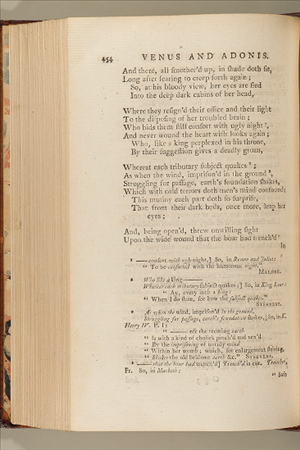 454 VENUS AND ADONIS.
And there, all smother'd up, in shade doth sit,
Long after fearing to creep forth again;
So, at his bloody view, her eyes are fled
Into the deep dark cabins of her head,
Where they resign'd their office and their light
To the disposing of her troubled brain;
Who bids them still consort with ugly night,
And never wound the heart with looks again;
Who, like a king perplexed in his throne,
By their suggestion gives a deadly groan,
Whereat each tributary subject quakes;
As when the wind, imprison'd in the ground,
Struggling for passage, earth's foundation shakes,
Which with cold terrors doth men's minds confound:
This mutiny each part doth so surprise,
That from their dark beds, once more, leap her
eyes;
And, being open'd, threw unwilling light
Upon the wide wound that the boar had trench'd
In
— consort with ugly night,] So, in Romeo and Juliet:
" To be consorted with the humorous night."
MALONE.
Who like a king
Whereat each tributary subject quakes;] So, in King Lear:
" Ay, every inch a king:
" When I do stare, see how the subject quakes."
STEEVENS.
As when the wind, imprison'd in the ground,
Struggling for passage, earth's foundation shakes,] So, in K.
Henry IV. P. I:
" —— oft the teeming earth
" Is with a kind of cholick pinch'd and vex'd
" By the imprisoning of unruly wind
" Within her womb; which, for enlargement striving,
" Shakes the old beldame earth &c." STEEVENS.
— that the boar had trench'd] Trench'd is cut. Trancher,
Fr. So, in Macbeth: